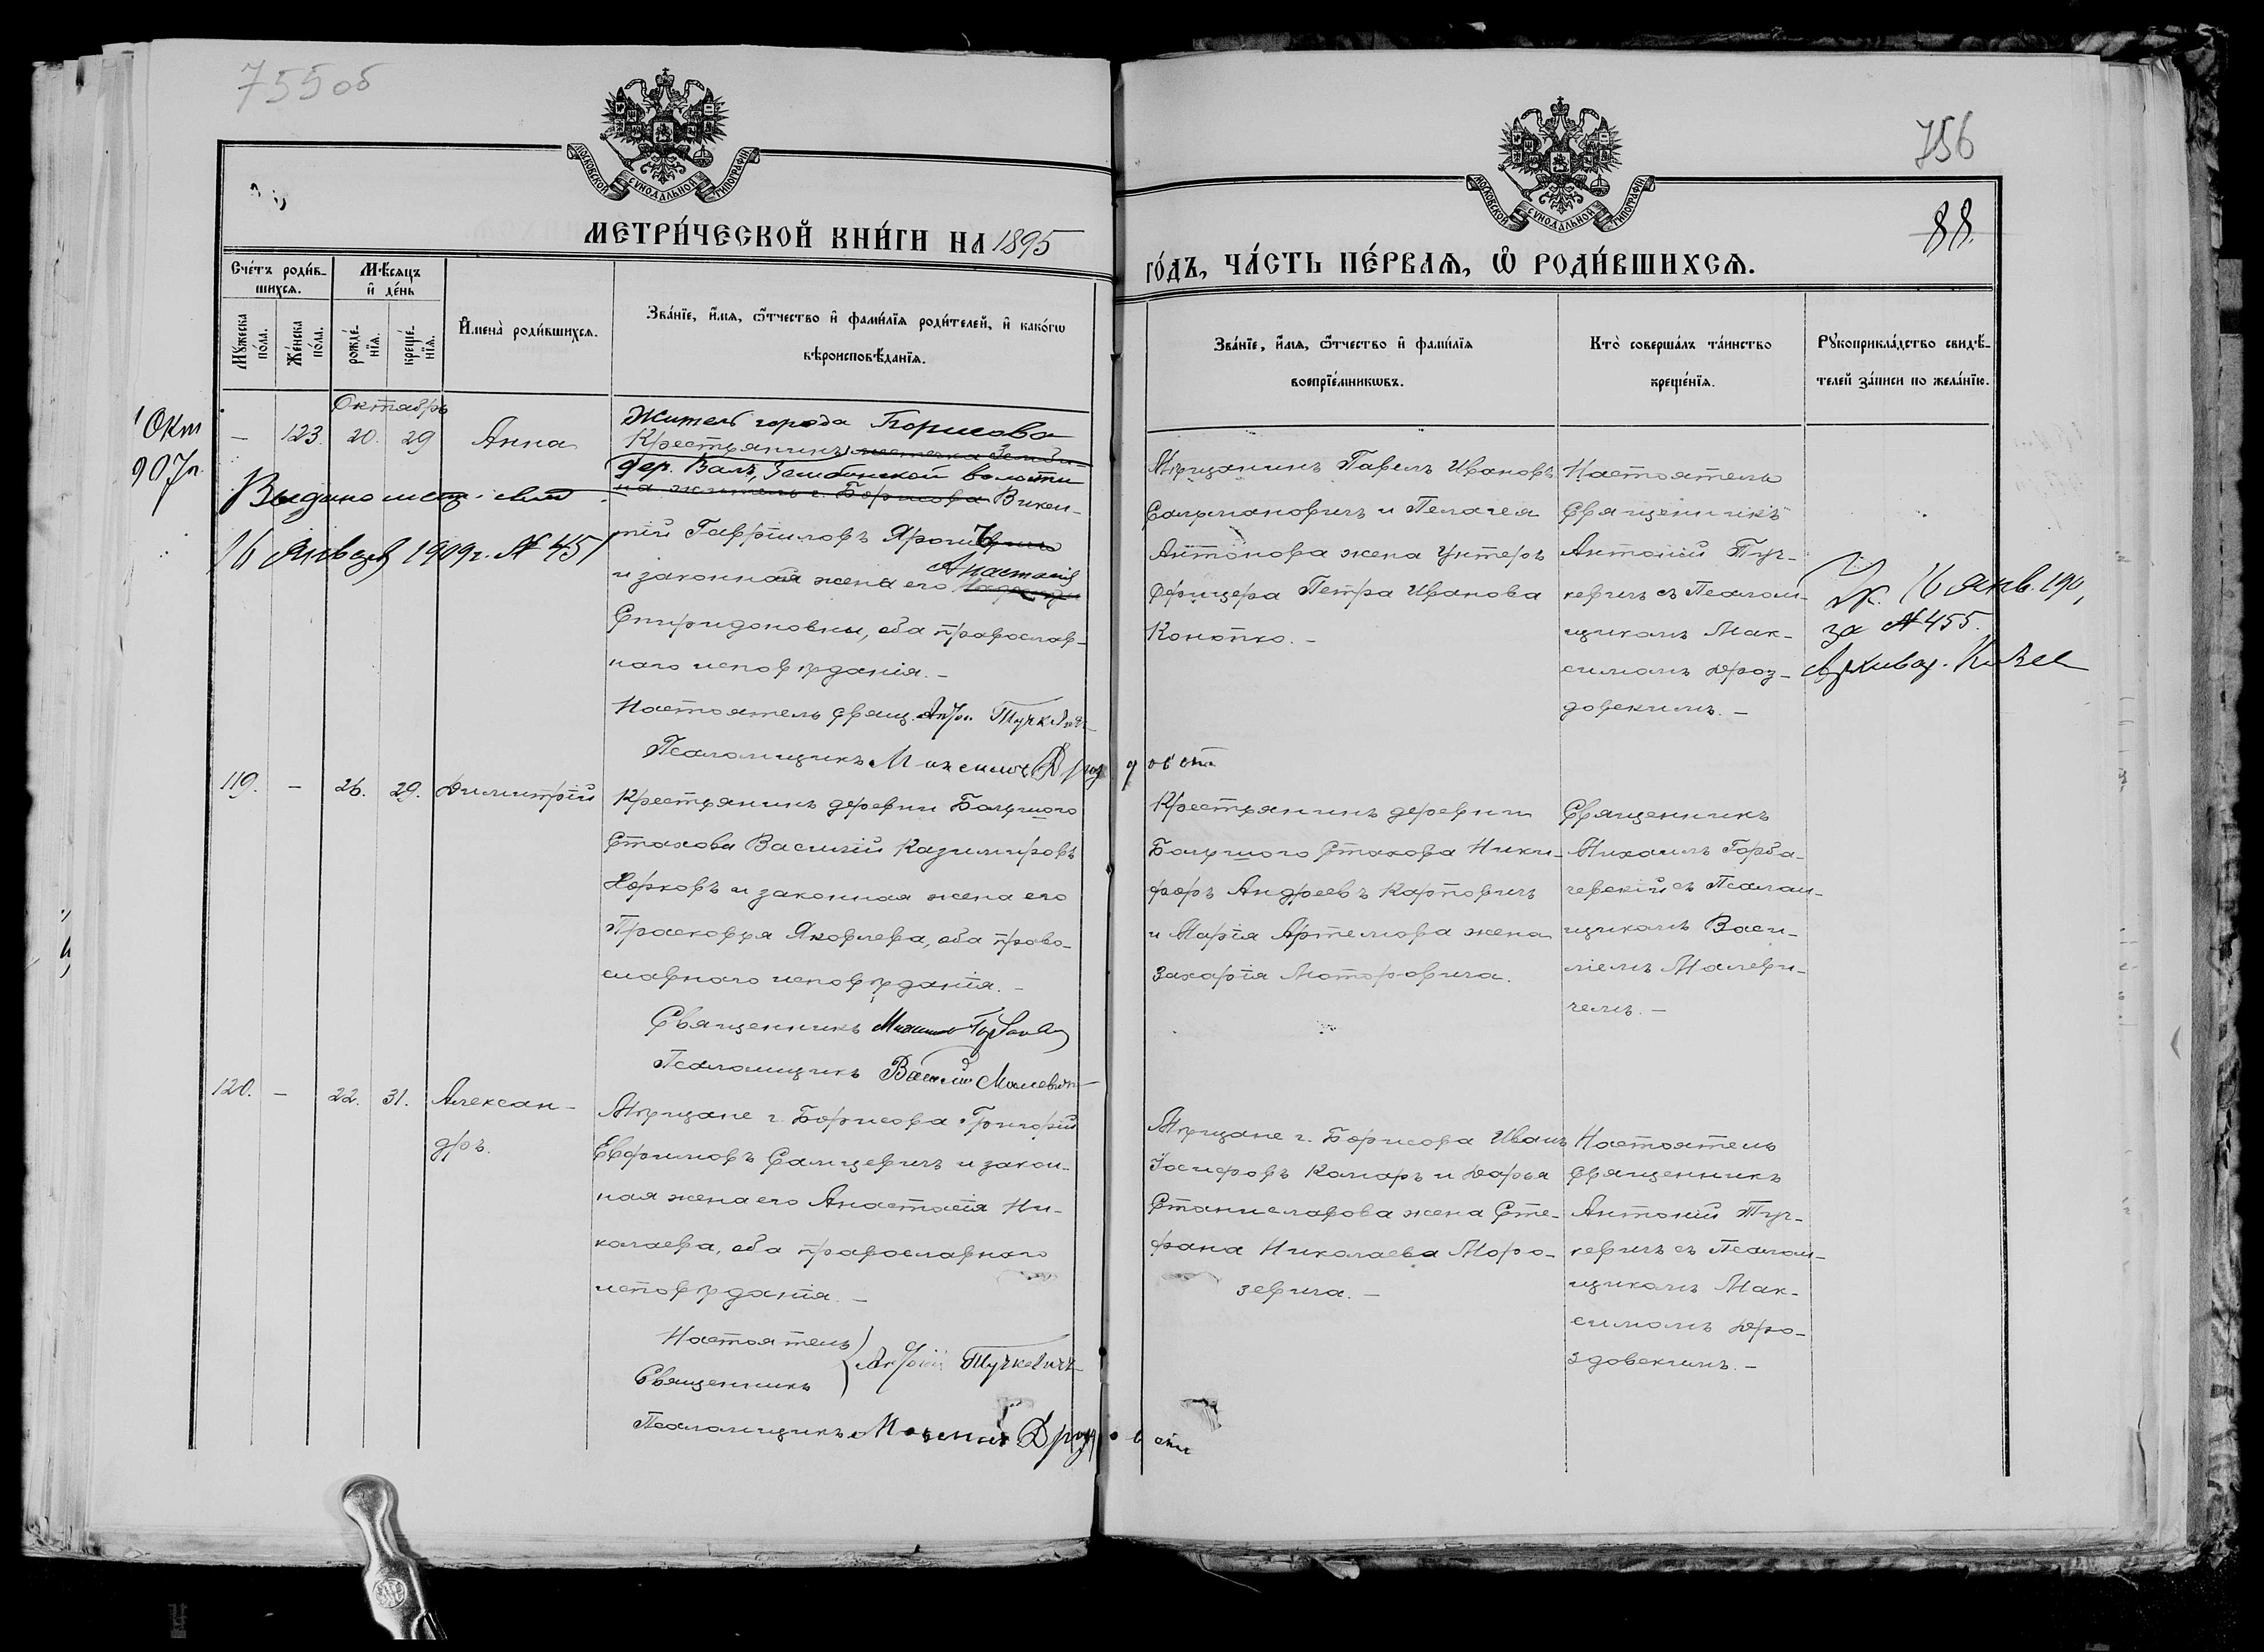 755 об
МОСКОВСКОЙ СѴНОДАЛЬНОЙ ТИПОГРАФІИ
МЕТРИ́ЧЕСКОЙ КНИ́ГИ НА 1895
Сче́тъ роди́в-
шихсѧ.
Мѣ́сѧцъ
и҆ де́нь
Мꙋ́жеска
по́ла.
Же́нска
по́ла.
рожде́-
нїѧ.
креще́-
нїѧ.
И҆мена̀ роди́вшихсѧ.
Зва́нїе, и҆́мѧ, ѻ҆́тчество и҆ фами́лїѧ роди́телей, и҆ како́гѡ
вѣроисповѣ́данїѧ.
Октябрь
1 Окт
907 г.
— 123. 20. 29 Анна
Житель города Борисова
Крестьянинъ местечка Земби-
дер. Валъ, Зембинской волости
на житель г. Борисова Викен-
тій Гавріиловъ
и законная жена его Анастасія
Спиридоновны, оба православ-
наго исповѣданія. —
Выдано мет.
16 Января 1909 г. № 451
Настоятель свящ. Антон. Тучкевичъ
Псаломщикъ Максимъ Дроздовскій
119. — 26. 29. Димитрій
Крестьянинъ деревни Большого
Стахова Василій Казимировъ
Норковъ и законная жена его
Прасковья Яковлева, оба право-
славнаго исповѣданія. —
Священникъ Михаилъ Горбачев
Псаломщикъ Василій Малевич
120. — 22. 31. Алексан-
дръ.
Мѣщане г. Борисова Григорій
Евфимовъ Салцевичъ и закон-
ная жена его Анастасія Ни-
колаева, оба православнаго
исповѣданія. —
Настоятель
Священникъ
Антоній Тучкевичъ
Псаломщикъ Максимъ Дроздовскій
756
88.
МОСКОВСКОЙ СѴНОДАЛЬНОЙ ТИПОГРАФІИ
ГО́ДЪ, ЧА́СТЬ ПЕ́РВАѦ, Ѡ҆ РОДИ́ВШИХСѦ.
Зва́нїе, и҆́мѧ, ѻ҆́тчество и҆ фами́лїѧ
воспрїе́мникѡвъ.
Кто̀ соверша́лъ та́инство
креще́нїѧ.
Рꙋкоприкла́дство свидѣ́-
телей за́писи по жела́нїю.
Мѣщанинъ Павелъ Ивановъ
Салмановичъ и Пелагея
Антонова жена Унтеръ
Офицера Петра Иванова
Конопко. —
Настоятель
Священникъ
Антоній Туч-
кевичъ съ Псалом-
щикомъ Мак-
симомъ Дроз-
довскимъ. —
16 янв. 190
за № 455.
Крестьянинъ деревни
Большого Стахова Ники-
форъ Андреевъ Карповичъ
и Марія Артемова жена
Захарія Моторовича.
Священникъ
Михаилъ Горба-
чевскій съ Псалом-
щикомъ Васи-
ліемъ Малеви-
чемъ. —
Мѣщане г. Борисова Иванъ
Іосифовъ Комаръ и Дарья
Станиславова жена Сте-
фана Николаева Моро-
зевича. —
Настоятель
Священникъ
Антоній Туч-
кевичъ съ Псалом-
щикомъ Мак-
симомъ Дро-
здовскимъ. —